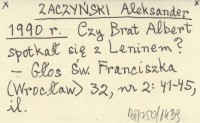 ZACZYŃSKI Aleksander
1990 r. Czy Brat Albert
spotkał się z Leninem?
– Głos Św. Franciszka
(Wrocław) 32, nr 2: 41-45,
il.